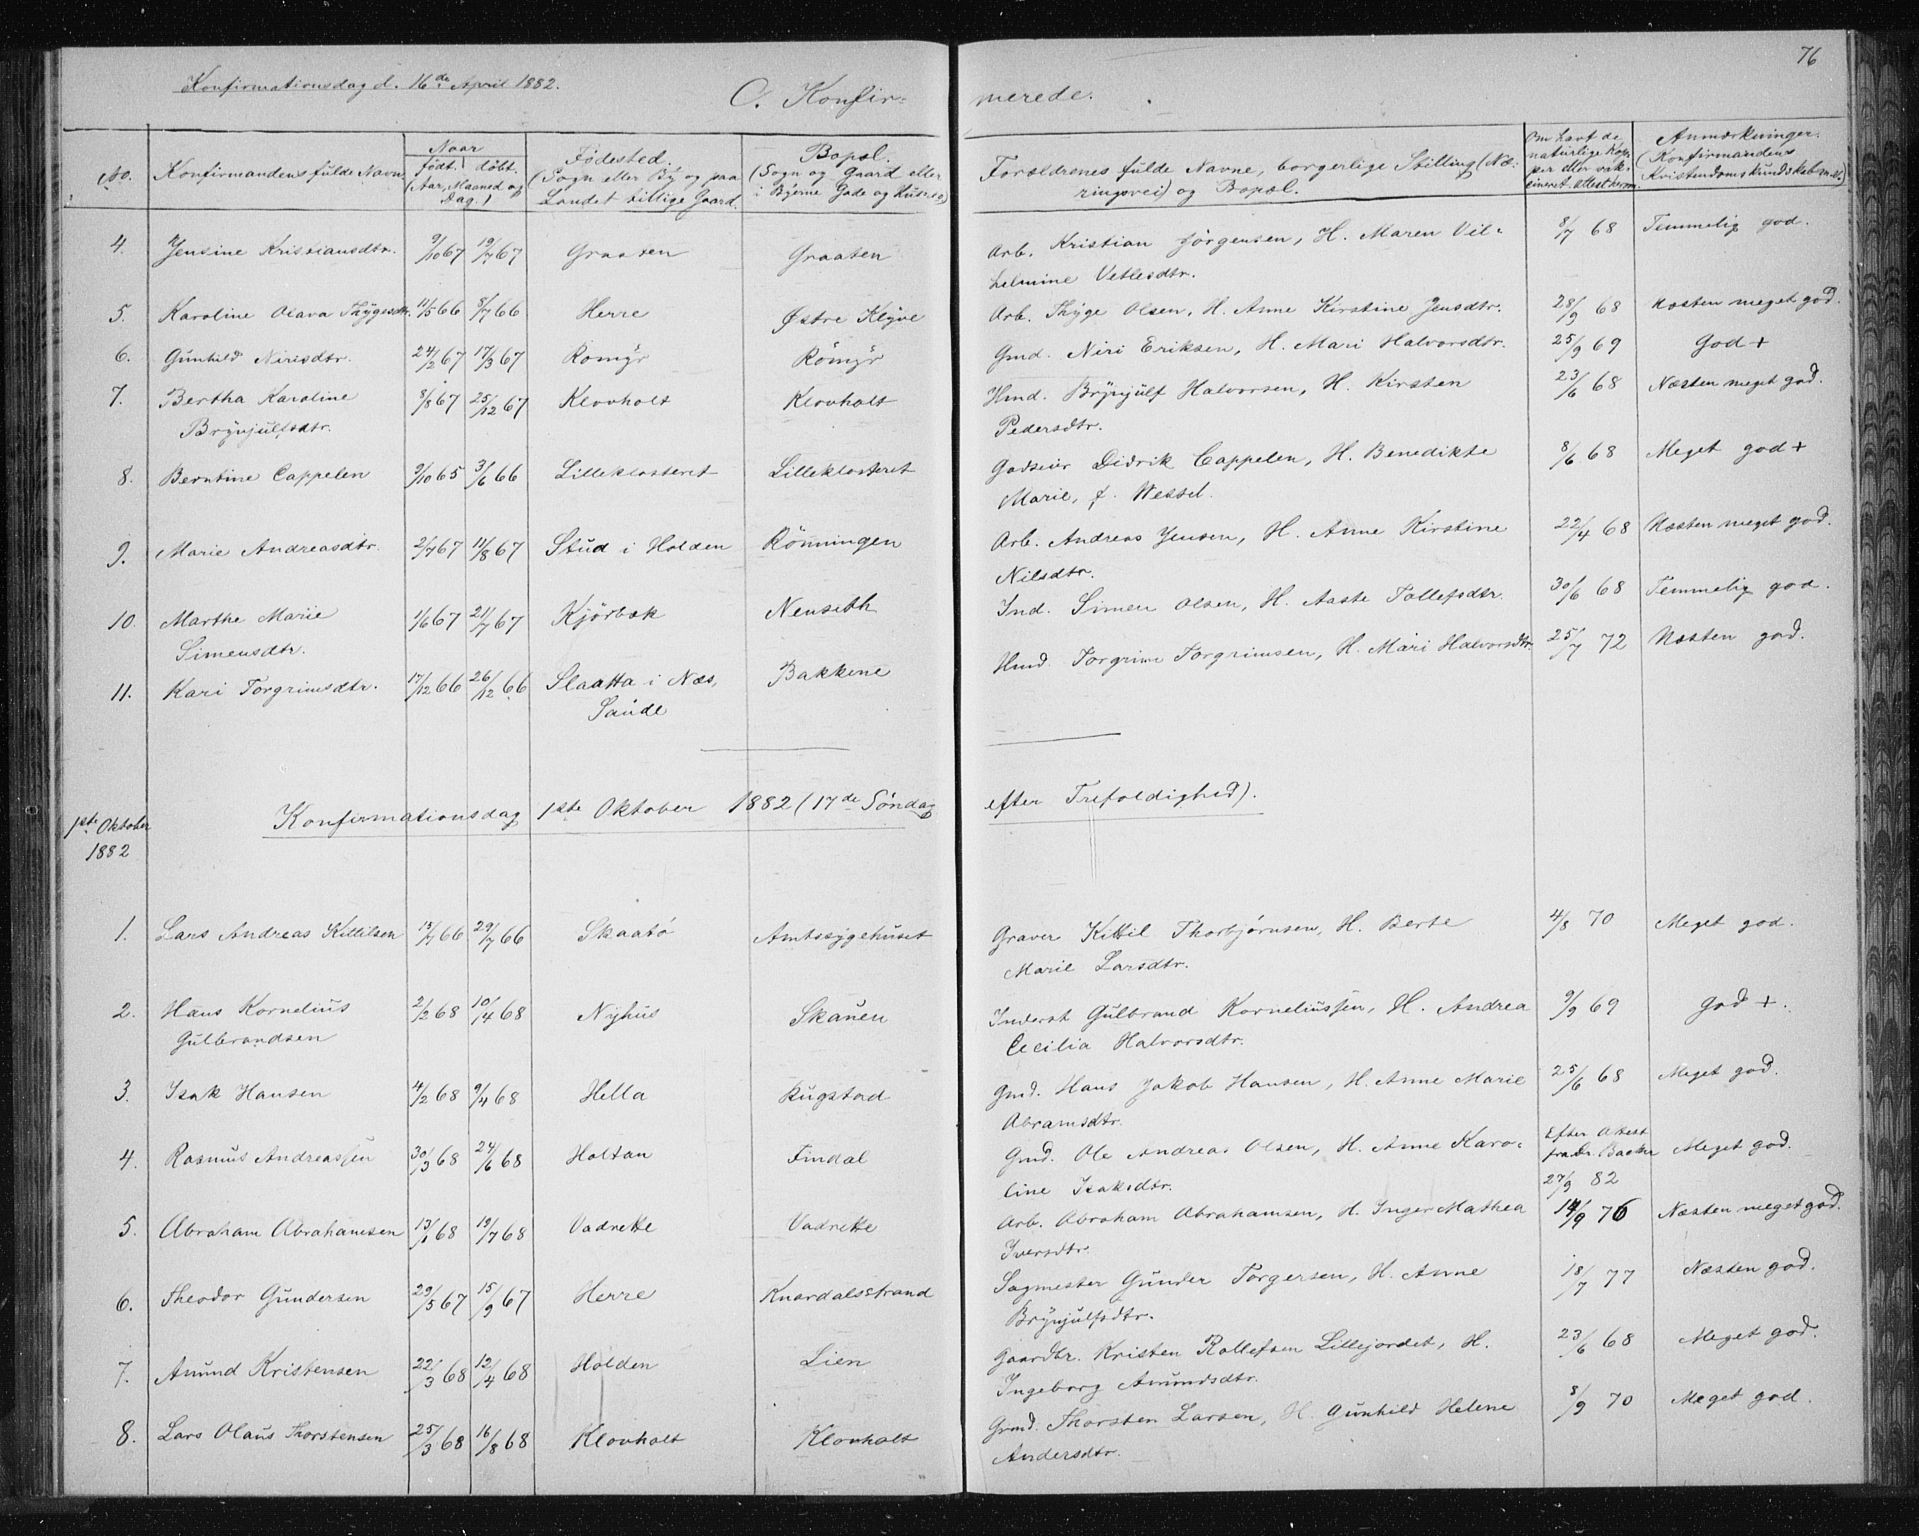 76
Konfirmationsdag d. 16de April 1882.
C. Konfirmerede.
No. Konfirmandens fulde Navn Naar født døbt (Aar, Maaned og Dag.) Fødested. (Sogn eller By og paa Landet tillige Gaard. Bopæl. (Sogn og Gaard eller i Byerne Gade og Husets) Forældrenes fulde Navne, borgerlige Stilling (Næringsvei) og Bopæl. Om havt de naturlige Kopper eller vaksineret. Attest herom Anmærkninger. (Konfirmandens Kristendomskundskab m.m.)
4. Jensine Kristiansdtr. 9/10 67 19/7 67 Graaten Graaten Arb. Kristian Jörgensen, H. Maren Vil- 8/7 68 Temmelig god.
helmine Vetlesdtr.
5. Karoline Olava Thygesdtr. 11/5 66 8/7 66 Herre Østre Klyve Arb. Thyge Olsen, H. Anne Kirstine Jensdtr. 28/9 68 Næsten meget god.
6. Gunhild Nirisdtr. 24/2 67 17/3 67 Romyr Römyr Gmd. Niri Eriksen, H. Mari Halvorsdtr. 25/9 69 God +
7. Bertha Karoline 8/8 67 25/12 67 Klovholt Klovholt Hmd. Brynjulf Halvorsen, H. Kirsten 23/6 68 Næsten meget god.
Brynjulfsdtr. Pedersdtr.
8. Berntine Cappelen 9/10 65 3/6 66 Lilleklosteret Lilleklosteret Godseier Didrik Cappelen, H. Benedikte 8/6 68 Meget god +
Marie, f. Wessel.
9. Marie Andreasdtr. 2/7 67 11/8 67 Stud i Holden Rönningen Arb. Andreas Jensen, H. Anne Kirstine 22/4 68 Næsten meget god.
Nilsdtr.
10. Marthe Marie 1/6 67 21/7 67 Kjörbæk Nenseth Ind. Simen Olsen, H. Aaste Tollefsdtr. 30/6 68 Temmelig god.
Simensdtr.
11. Kari Torgrimsdtr. 17/12 66 26/12 66 Slaatta i Næs, Bakkene Hmd. Torgrim Torgrimsen, H. Mari Halvorsdtr. 25/7 72 Næsten god.
Saude
1ste Oktober
1882
Konfirmationsdag 1ste Oktober 1882 (17de Söndag efter Trefoldighed).
1. Lars Andreas Kittilsen 13/7 66 29/7 66 Skaatö Amtssygehuset Graver Kittil Thorbjörnsen, H. Berte 4/8 70 Meget god.
Marie Larsdtr.
2. Hans Kornelius 2/2 68 10/4 68 Nyhus Skauen Inderst Gulbrand Korneliussen, H. Andrea 9/9 69 God +.
Gulbrandsen Cecilia Halvorsdtr.
3. Isak Hansen 4/2 68 9/4 68 Hella Rugstad Gmd. Hans Jakob Hansen, H. Anne Marie 25/6 68 Meget god.
Abramsdtr.
4. Rasmus Andreassen 30/3 68 24/6 68 Holtan Findal Gmd. Ole Andreas Olsen, H. Anne Karo- Efter Attest fra Dr. Backer Meget god.
line Isaksdtr. 27/9 82
5. Abraham Abrahamsen 13/1 68 19/7 68 Vadrette Vadrette Arb. Abraham Abrahamsen, H. Inger Mathea 14/9 76 Næsten meget god.
Iversdtr.
6. Theodor Gundersen 29/5 67 15/9 67 Herre Knardalsstrand Sagmester Gunder Torgersen, H. Anne 18/7 77 Næsten god.
Brynjulfsdtr.
7. Amund Kristensen 22/3 68 12/4 68 Holden Lien Gaardbr. Kristen Rollefsen Lillejordet, H. 23/6 68 Meget god.
Ingeborg Amundsdtr.
8. Lars Olaus Thorstensen 25/3 68 16/8 68 Klovholt Klovholt Gmd. Thorsten Larsen, H. Gunhild Helene 8/9 70 Meget god.
Andersdtr.